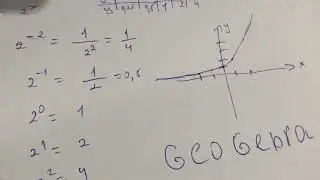 2^-2 = 1/2^2 = 1/4
2^-1 = 1/2 = 0,5
2^0 = 1
2^1 = 2
2^2 = 4
y
x
GeoGebra